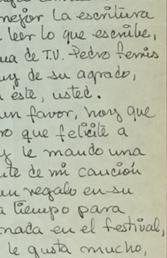 mejor la escritura
leer lo que escribe,
ua de T.V. Pedro Ferris
uy de su agrado,
este, usted.
un favor, hoy que
ro que felicite a
y le mando una
te de mi caución
un regalo en su
a tiempo para
nada en el festival,
le gusta mucho,